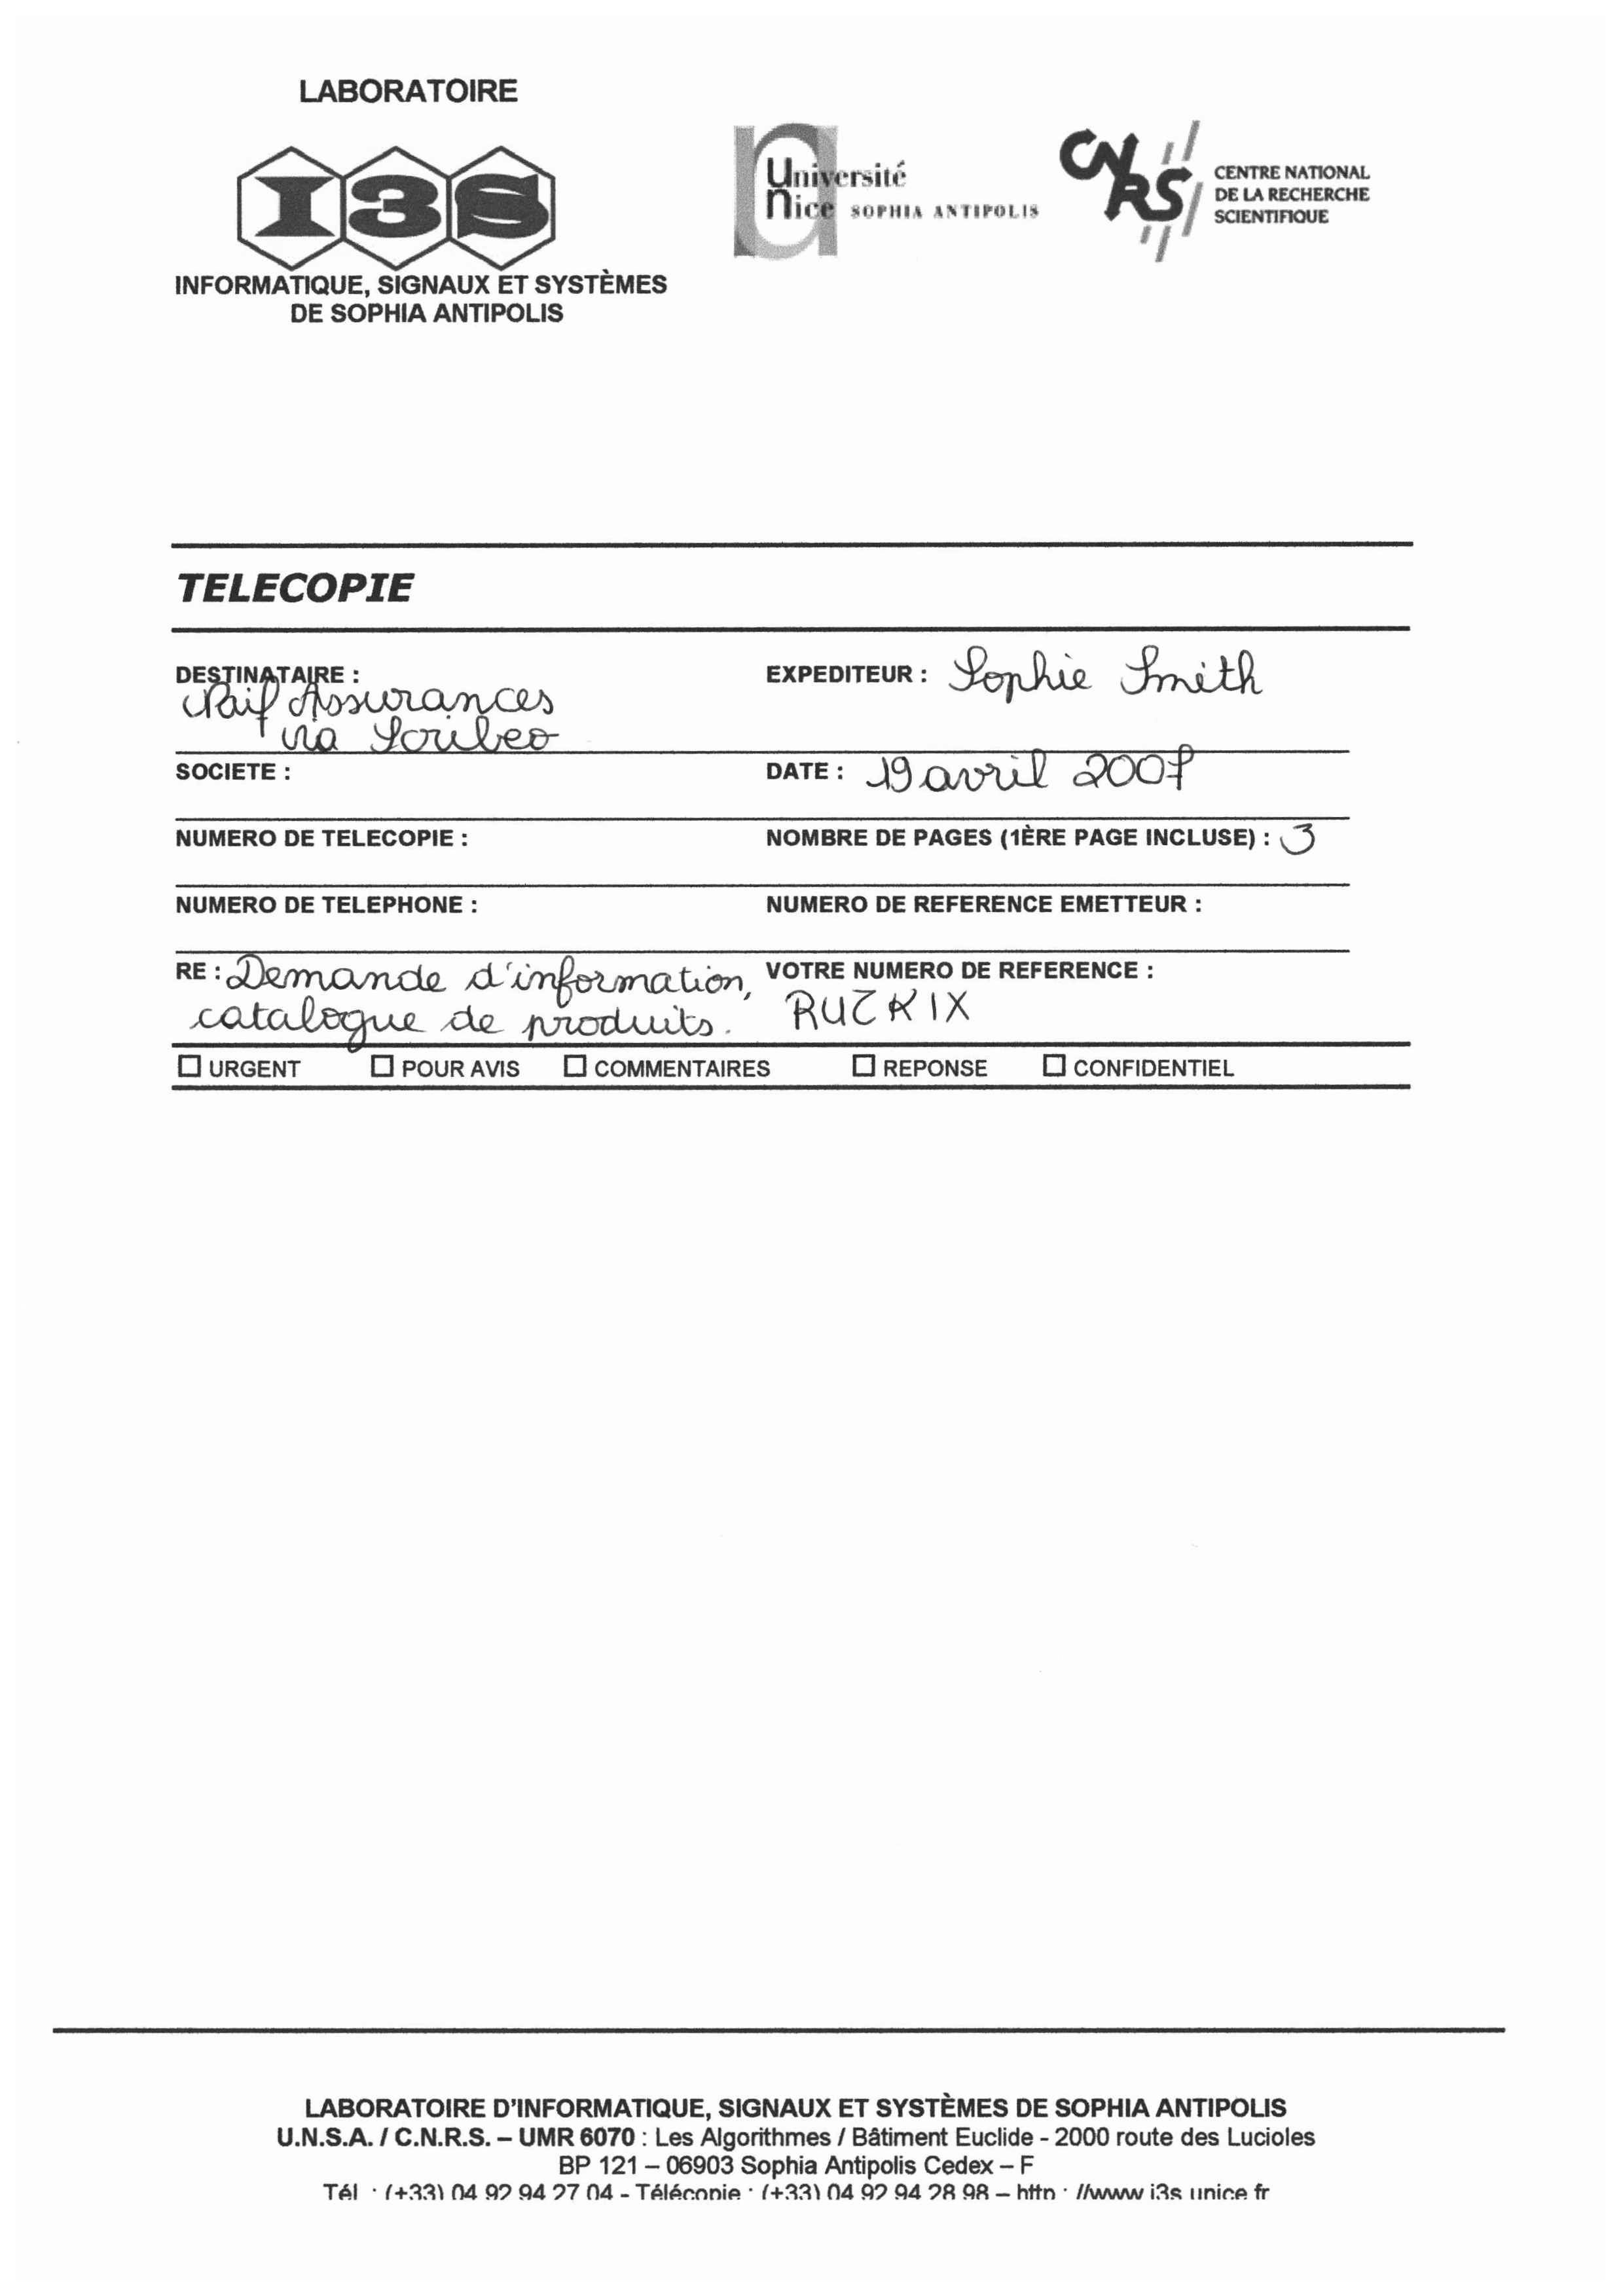 LABORATOIRE
I3S
INFORMATIQUE, SIGNAUX ET SYSTÈMES
DE SOPHIA ANTIPOLIS
Université
Nice SOPHIA ANTIPOLIS
CNRS
CENTRE NATIONAL
DE LA RECHERCHE
SCIENTIFIQUE
TELECOPIE
DESTINATAIRE :
Naif Assurances
via Scribeo
EXPEDITEUR : Sophie Smith
SOCIETE :
DATE : 19 avril 2007
NUMERO DE TELECOPIE :
NOMBRE DE PAGES (1ÈRE PAGE INCLUSE) : 3
NUMERO DE TELEPHONE :
NUMERO DE REFERENCE EMETTEUR :
RE : Demande d'information,
catalogue de produits.
VOTRE NUMERO DE REFERENCE :
RUZKIX
☐ URGENT ☐ POUR AVIS ☐ COMMENTAIRES ☐ REPONSE ☐ CONFIDENTIEL
LABORATOIRE D'INFORMATIQUE, SIGNAUX ET SYSTÈMES DE SOPHIA ANTIPOLIS
U.N.S.A. / C.N.R.S. – UMR 6070 : Les Algorithmes / Bâtiment Euclide - 2000 route des Lucioles
BP 121 – 06903 Sophia Antipolis Cedex – F
Tél : (+33) 04 92 94 27 04 - Télécopie : (+33) 04 92 94 28 98 – http : //www.i3s.unice.fr